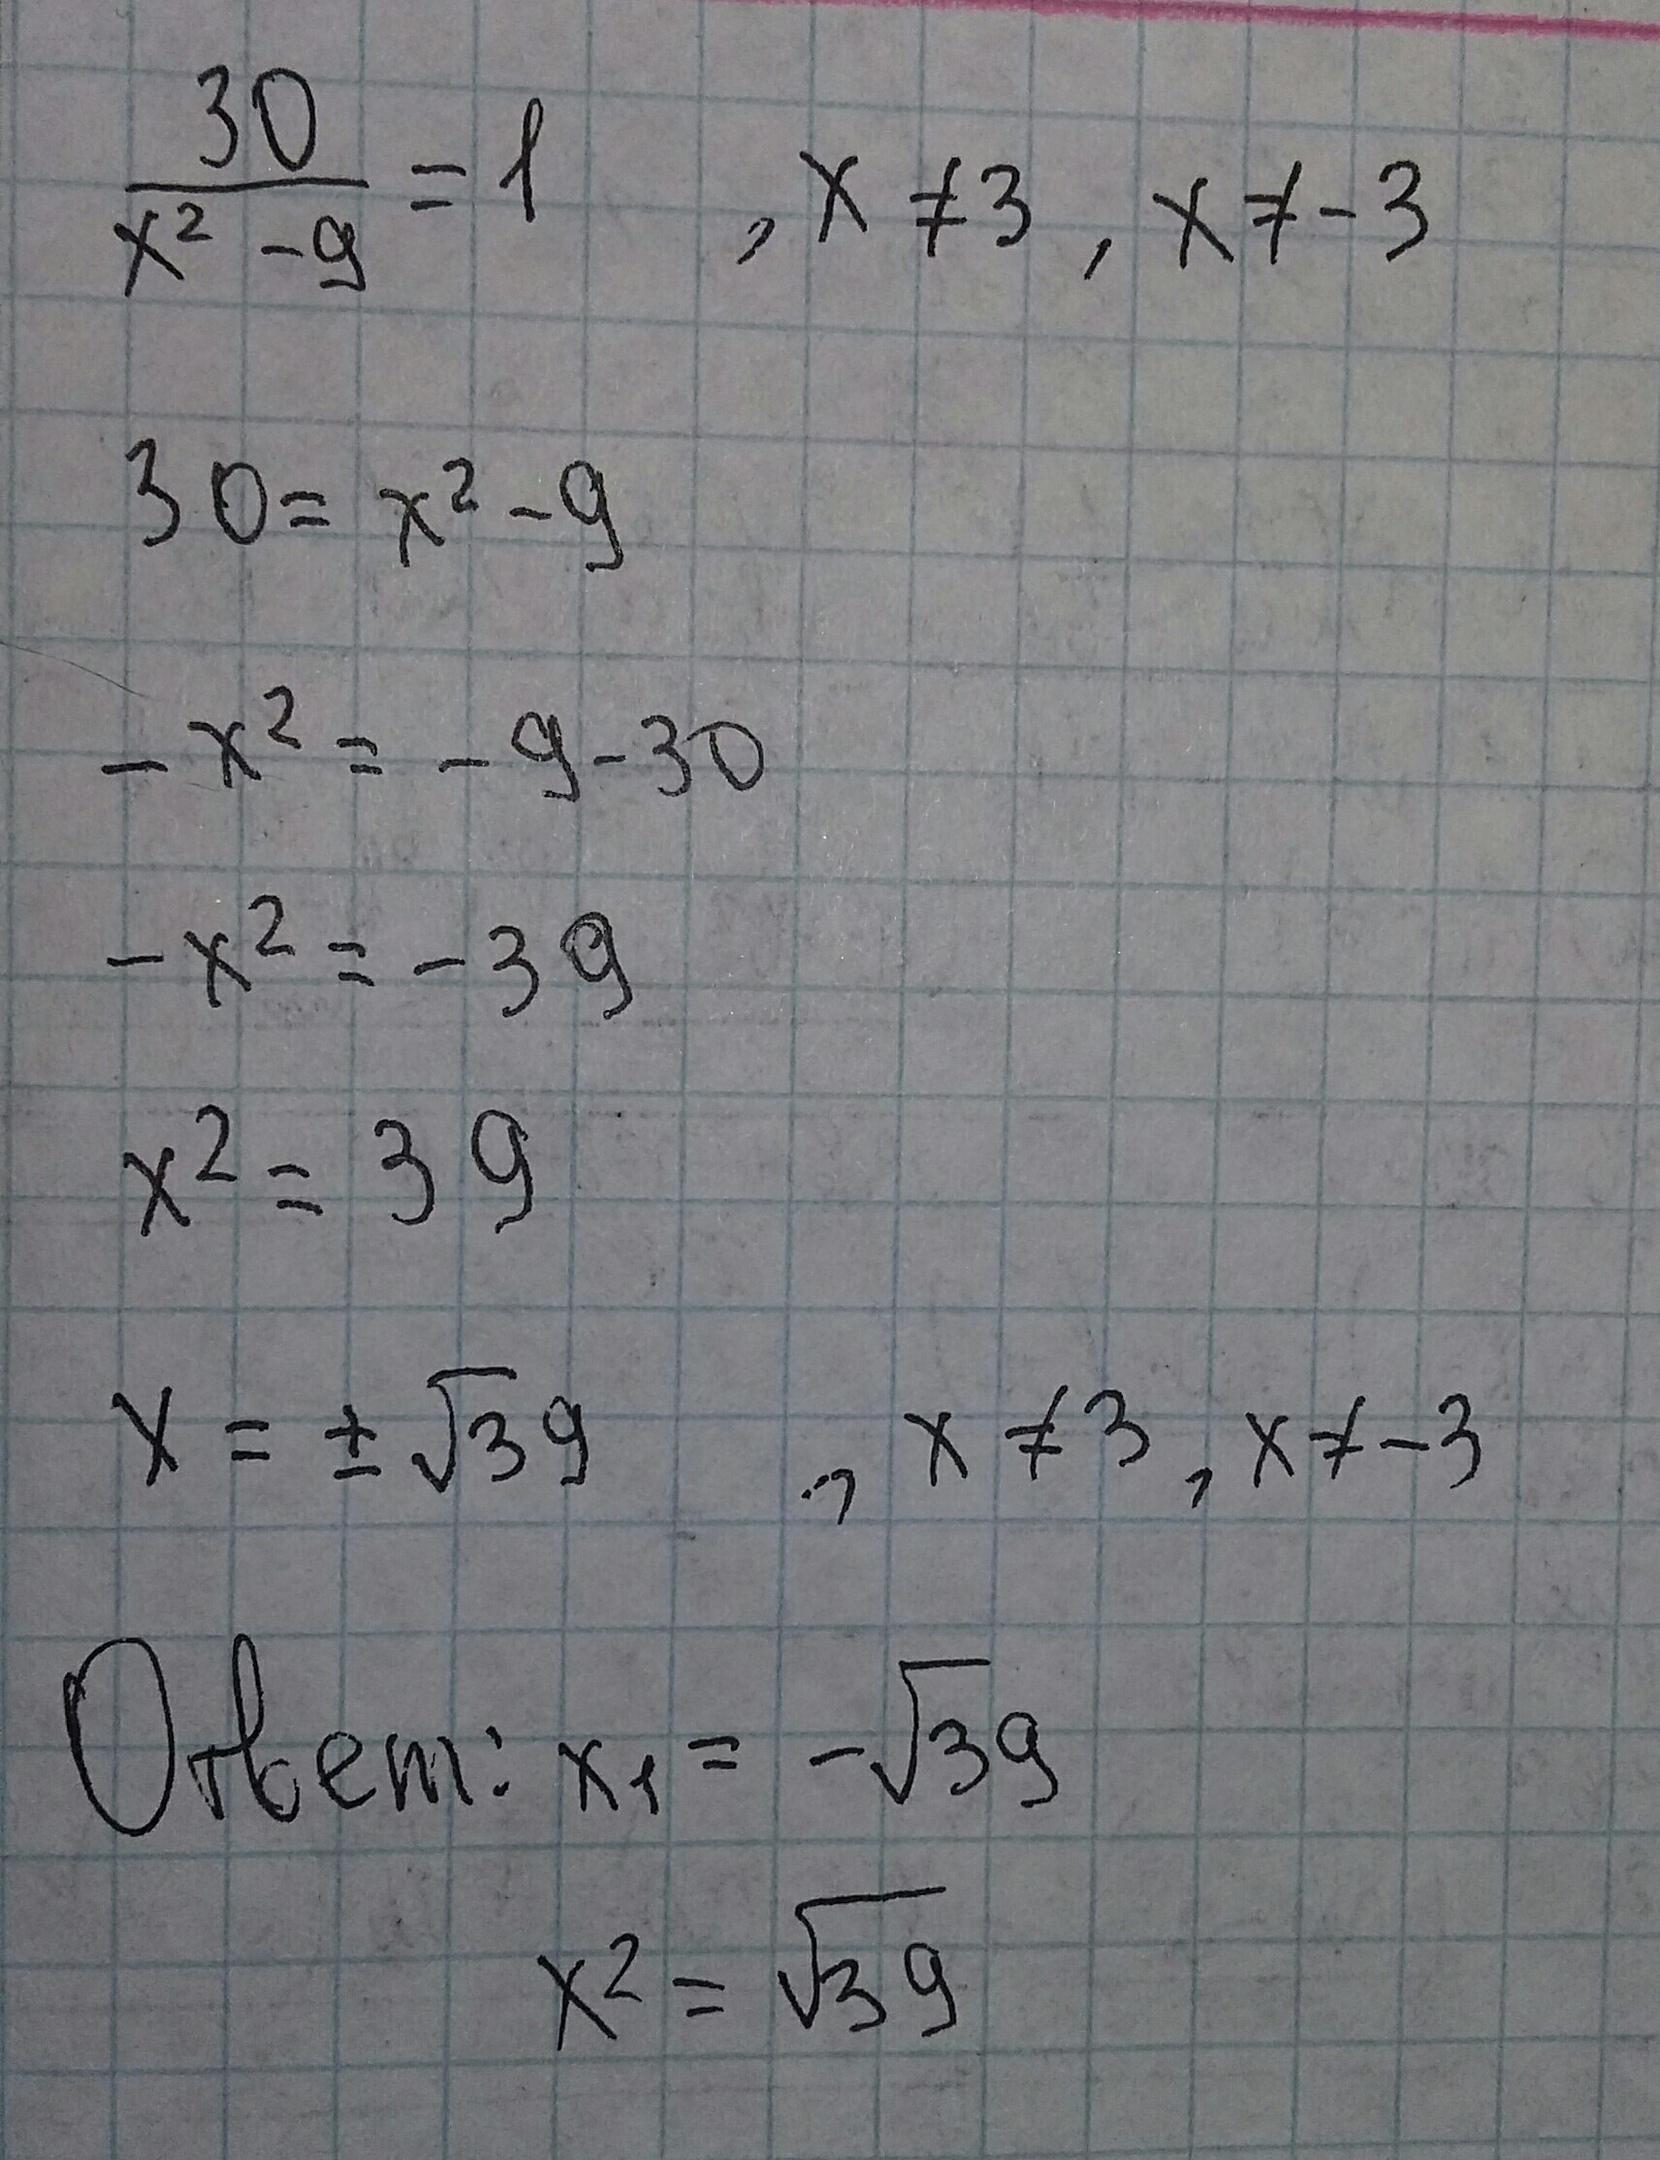 30/(x² - 9) = 1 , x ≠ 3 , x ≠ -3
30 = x² - 9
- x² = - 9 - 30
- x² = - 39
x² = 39
x = ± √39 , x ≠ 3 , x ≠ -3
Ответ: x₁ = - √39
x² = √39